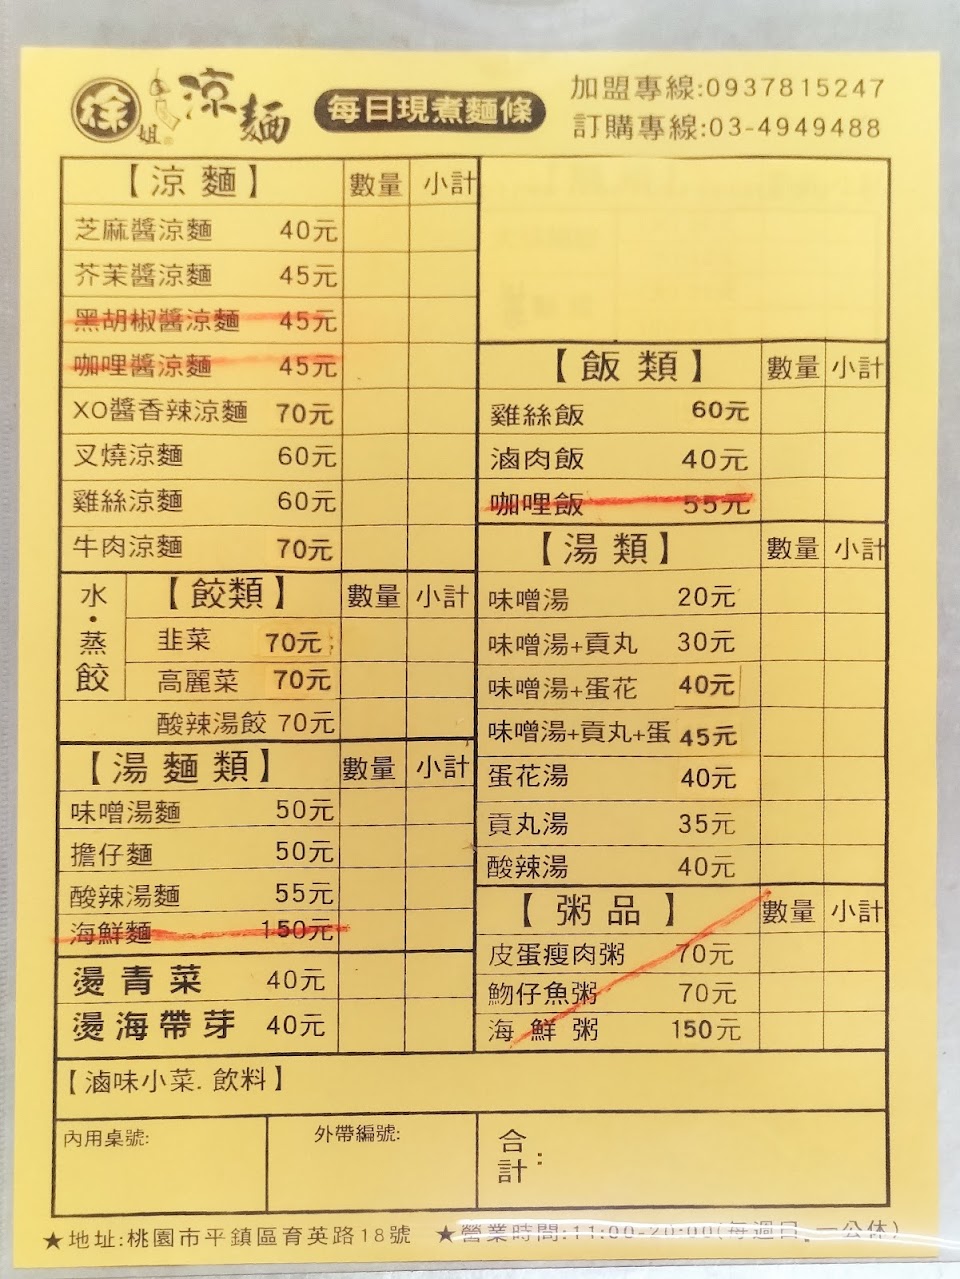 徐姐 涼麵
每日現煮麵條
加盟專線:0937815247
訂購專線:03-4949488
【涼麵】 數量 小計
芝麻醬涼麵 40元
芥茉醬涼麵 45元
黑胡椒醬涼麵 45元
咖哩醬涼麵 45元
XO醬香辣涼麵 70元
叉燒涼麵 60元
雞絲涼麵 60元
牛肉涼麵 70元
水·蒸餃 【餃類】 數量 小計
韭菜 70元
高麗菜 70元
酸辣湯餃 70元
【湯麵類】 數量 小計
味噌湯麵 50元
擔仔麵 50元
酸辣湯麵 55元
海鮮麵 150元
燙青菜 40元
燙海帶芽 40元
【飯類】 數量 小計
雞絲飯 60元
滷肉飯 40元
咖哩飯 55元
【湯類】 數量 小計
味噌湯 20元
味噌湯+貢丸 30元
味噌湯+蛋花 40元
味噌湯+貢丸+蛋 45元
蛋花湯 40元
貢丸湯 35元
酸辣湯 40元
【粥品】 數量 小計
皮蛋瘦肉粥 70元
魩仔魚粥 70元
海鮮粥 150元
【滷味小菜. 飲料】
內用桌號:
外帶編號:
合計:
★地址:桃園市平鎮區育英路18號
★營業時間:11:00-20:00(每週日。一公休)